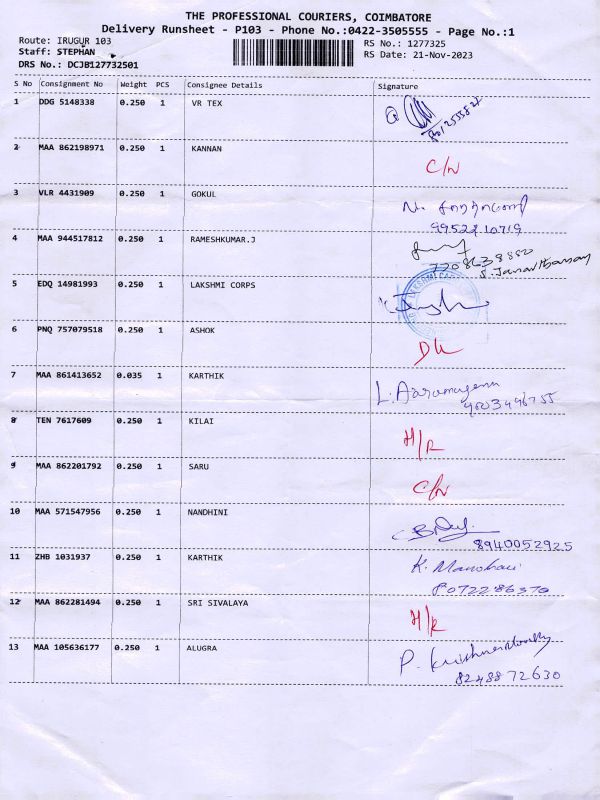 THE PROFESSIONAL COURIERS, COIMBATORE
Delivery Runsheet - P103 - Phone No.:0422-3505555 - Page No.:1
Route: IRUGUR 103
RS No.: 1277325
Staff: STEPHAN
RS Date: 21-Nov-2023
DRS No.: DCJB127732501
S No Consignment No Weight PCS Consignee Details Signature
1 DDG 5148338 0.250 1 VR TEX
2 MAA 862198971 0.250 1 KANNAN C/N
3 VLR 4431909 0.250 1 GOKUL
9952210719
4 MAA 944517812 0.250 1 RAMESHKUMAR.J
7708638880
S. Janarthanan
5 EDQ 14981993 0.250 1 LAKSHMI CORPS
6 PNQ 757079518 0.250 1 ASHOK DL
7 MAA 861413652 0.035 1 KARTHIK
8 TEN 7617609 0.250 1 KILAI H/R
9 MAA 862201792 0.250 1 SARU C/N
10 MAA 571547956 0.250 1 NANDHINI
8940052925
11 ZHB 1031937 0.250 1 KARTHIK K. Manohari
8072286370
12 MAA 862281494 0.250 1 SRI SIVALAYA H/R
13 MAA 105636177 0.250 1 ALUGRA
8248872630